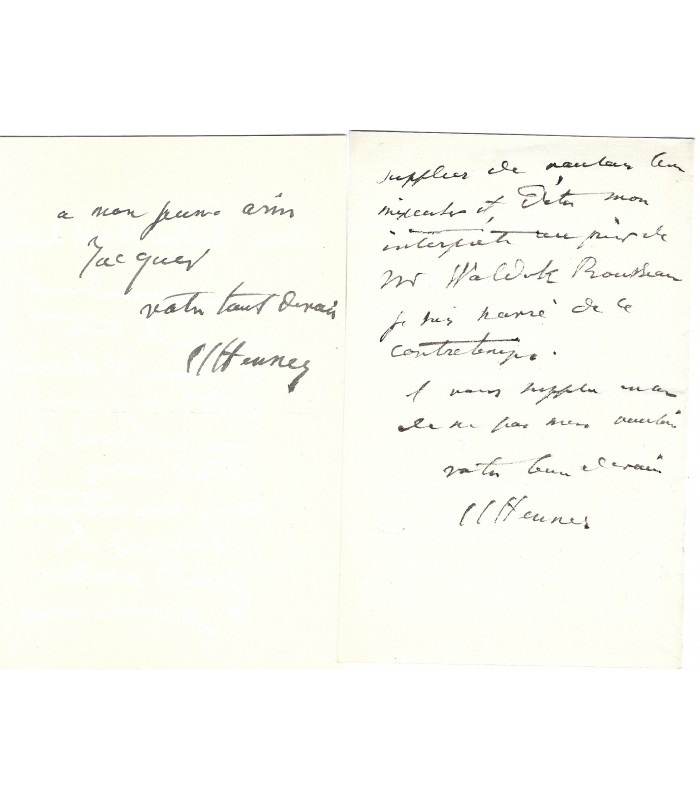 a mon jeune ami
Jacques
votre tout dévoué
JJHenner
supplier de vouloir bien
m'excuser et d'être mon
interprète auprès de
Mr Waldeck Rousseau
je suis navré de ce
contretemps.
vous supplie
de ne pas m'en vouloir
votre bien dévoué
JJHenner